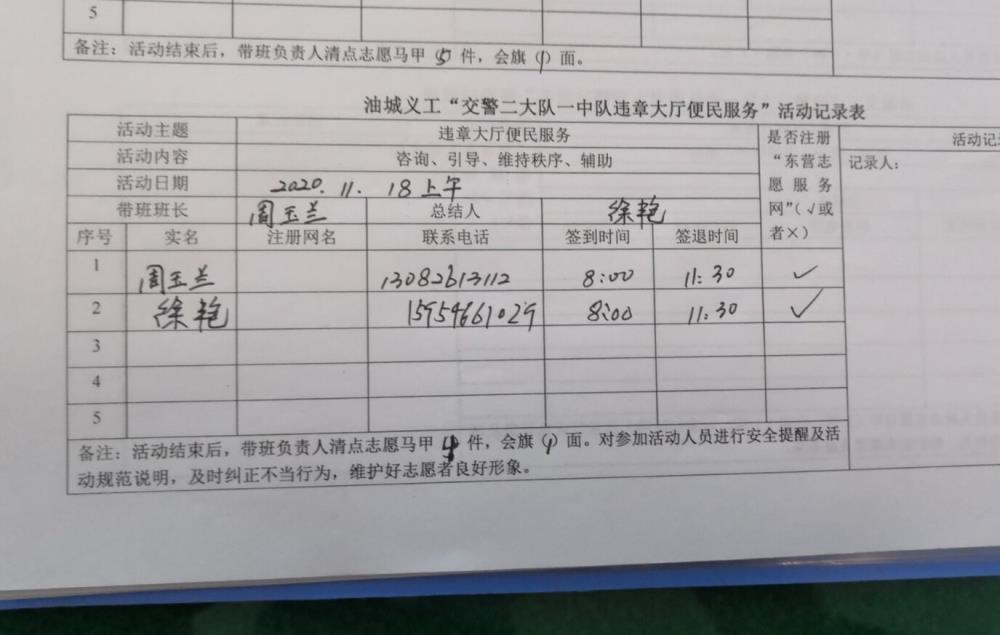 5
备注：活动结束后，带班负责人清点志愿马甲（5）件，会旗（1）面。
油城义工“交警二大队一中队违章大厅便民服务”活动记录表
活动主题 违章大厅便民服务
活动内容 咨询、引导、维持秩序、辅助
活动日期 2020.11.18上午
带班班长 周玉兰 总结人 徐艳
是否注册“东营志愿服务网”（√或者×）
活动记
记录人：
序号 实名 注册网名 联系电话 签到时间 签退时间
1 周玉兰 13082613112 8:00 11:30 ✓
2 徐艳 15954661029 8:00 11:30 ✓
3
4
5
备注：活动结束后，带班负责人清点志愿马甲（4）件，会旗（1）面。对参加活动人员进行安全提醒及活
动规范说明，及时纠正不当行为，维护好志愿者良好形象。